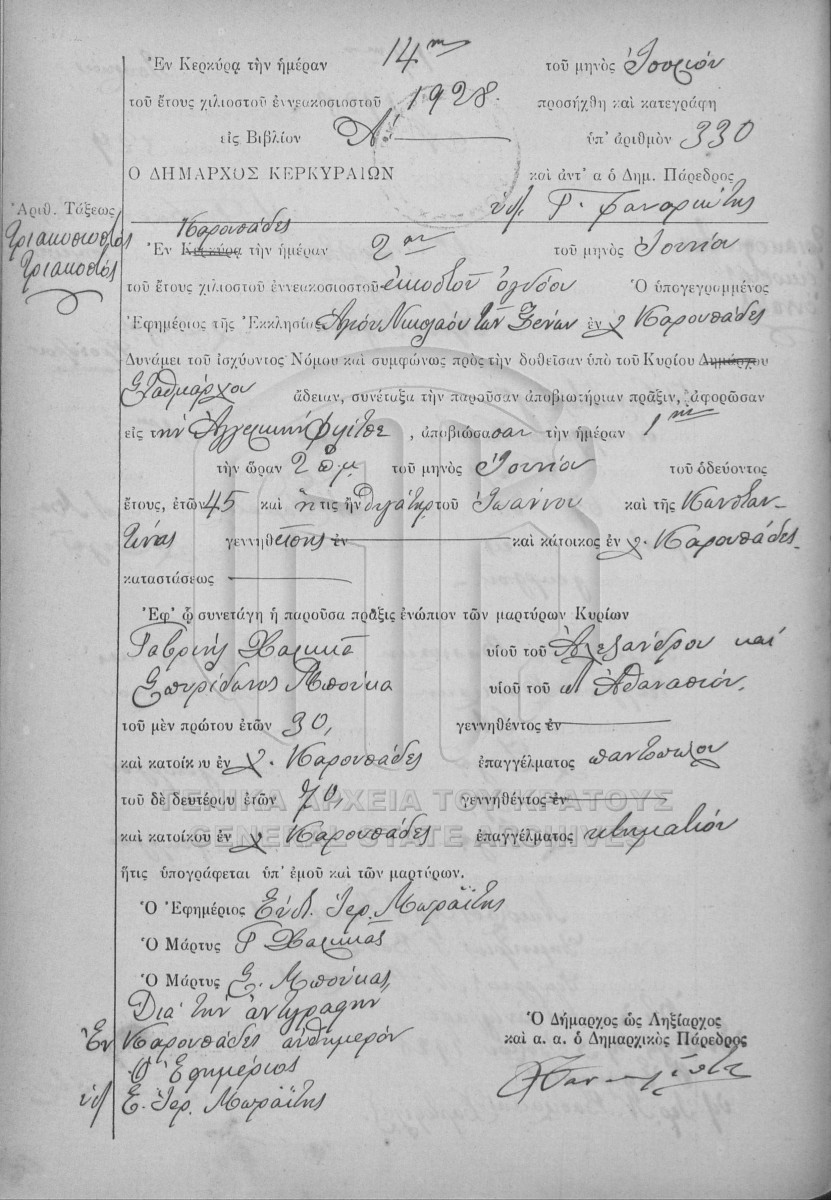 Ἐν Κερκύρᾳ τὴν ἡμέραν 14ην τοῦ μηνὸς Ἰουνίου
τοῦ ἔτους χιλιοστοῦ ἐννεακοσιοστοῦ 1928 προσήχθη καὶ κατεγράφη
εἰς Βιβλίον Α' ὑπ' ἀριθμὸν 330
Ο ΔΗΜΑΡΧΟΣ ΚΕΡΚΥΡΑΙΩΝ καὶ ἀντ' α ὁ Δημ. Πάρεδρος
ὑπ. Γ.
Ἀριθ. Τάξεως
Τριακοσιοστὸς
Τριακοστός
Καρουσάδες
Ἐν Κερκύρᾳ τὴν ἡμέραν 2αν τοῦ μηνὸς Ἰουνίου
τοῦ ἔτους χιλιοστοῦ ἐννεακοσιοστοῦ εἰκοστοῦ ὀγδόου Ὁ ὑπογεγραμμένος
Ἐφημέριος τῆς Ἐκκλησίας Ἁγίου Νικολάου τῶν Ξένων ἐν χ Καρουσάδες
Δυνάμει τοῦ ἰσχύοντος Νόμου καὶ συμφώνως πρὸς τὴν δοθεῖσαν ὑπὸ τοῦ Κυρίου Δημάρχου
Σταθμάρχου ἄδειαν, συνέταξα τὴν παροῦσαν ἀποβιωτήριαν πρᾶξιν, ἀφορῶσαν
εἰς τὴν Ἀγγελικὴν , ἀποβιώσασαν τὴν ἡμέραν 1ην
τὴν ὥραν 2 π.μ. τοῦ μηνὸς Ἰουνίου τοῦ ὁδεύοντος
ἔτους, ἐτῶν 45 καὶ ἥτις ἦν θυγάτηρ τοῦ Ἰωάννου καὶ τῆς Κωνσταν-
τίνας γεννηθείσης ἐν καὶ κάτοικος ἐν χ. Καρουσάδες
καταστάσεως
Ἐφ' ᾧ συνετάγη ἡ παροῦσα πρᾶξις ἐνώπιον τῶν μαρτύρων Κυρίων
Γαβριὴλ υἱοῦ τοῦ Ἀλεξάνδρου καὶ
Σπυρίδωνος Μπούκα υἱοῦ τοῦ Ἀθανασίου
τοῦ μὲν πρώτου ἐτῶν 30, γεννηθέντος ἐν
καὶ κατοίκου ἐν χ. Καρουσάδες ἐπαγγέλματος παντοπώλου
τοῦ δὲ δευτέρου ἐτῶν 70, γεννηθέντος ἐν
ΓΕΝΙΚΑ ΑΡΧΕΙΑ ΤΟΥ ΚΡΑΤΟΥΣ
GENERAL STATE ARCHIVES
καὶ κατοίκου ἐν χ Καρουσάδες ἐπαγγέλματος κτηματίου
ἥτις ὑπογράφεται ὑπ' ἐμοῦ καὶ τῶν μαρτύρων.
Ὁ Ἐφημέριος Εὐστ. Ἱερ. Μωραΐτης
Ὁ Μάρτυς Γ
Ὁ Μάρτυς Σ. Μπούκας
Διὰ τὴν ἀντιγραφὴν
Ἐν Καρουσάδες αὐθημερόν
Ὁ Ἐφημέριος
ὑπ Ε. Ἱερ. Μωραΐτης
Ὁ Δήμαρχος ὡς Ληξίαρχος
καὶ α. α. ὁ Δημαρχικὸς Πάρεδρος